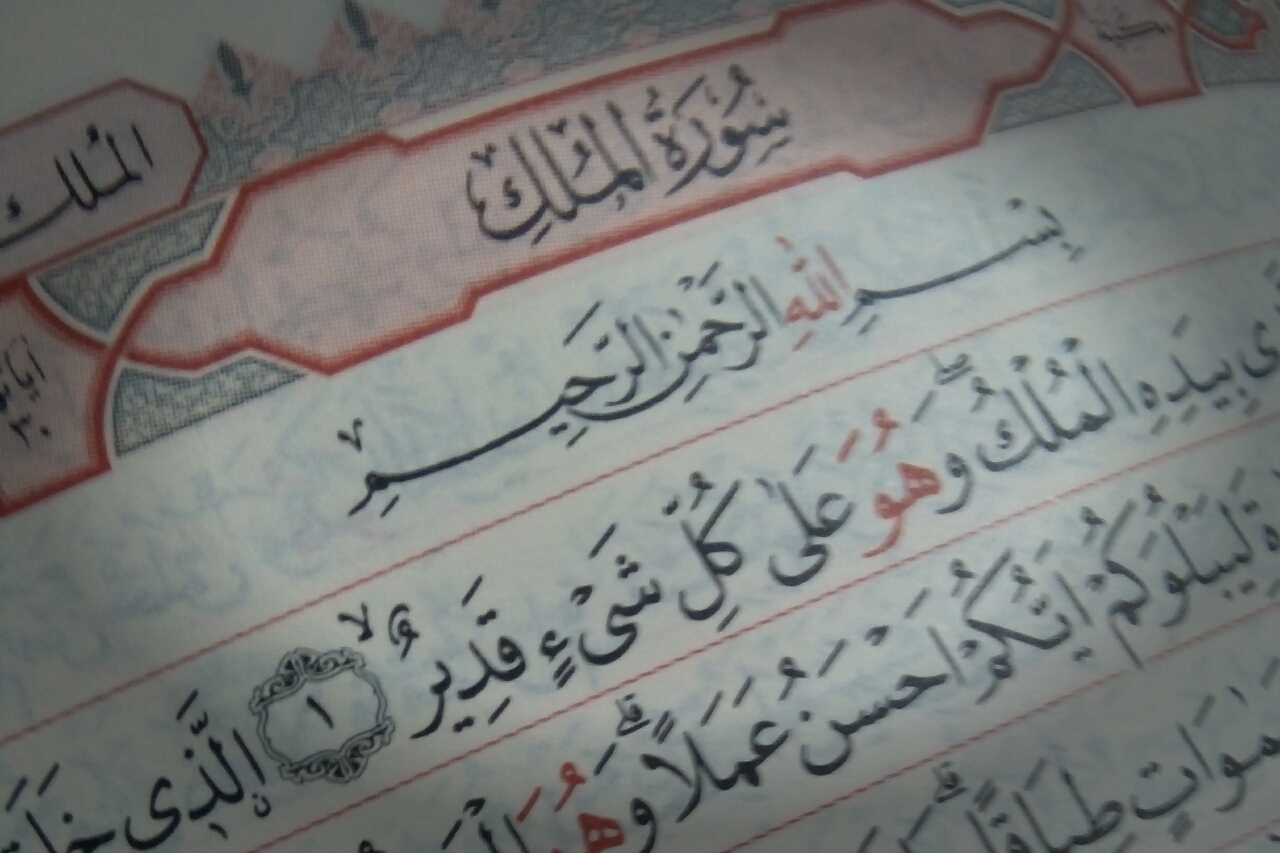 الملك
سُورَةُ الْمُلْكِ
اٰيَاتُهَا
٣٠
بِسْمِ اللّٰهِ الرَّحْمٰنِ الرَّحِيمِ
بِيَدِهِ الْمُلْكُ وَهُوَ عَلٰى كُلِّ شَىْءٍ قَدِيرٌ ١ اَلَّذِى
لِيَبْلُوَكُمْ اَيُّكُمْ اَحْسَنُ عَمَلًا وَهُوَ
طِبَاقًا